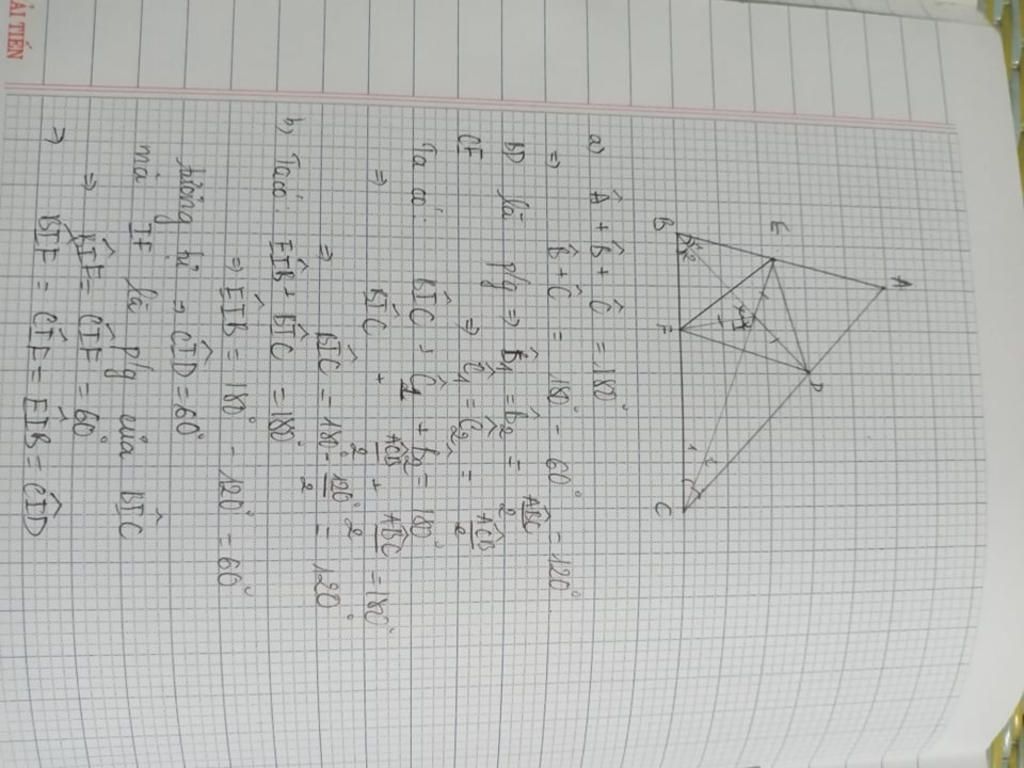 ẢI TIẾN
A
E
D
I
B
F
C
a) Â + B̂ + Ĉ = 180°
⇒ B̂ + Ĉ = 180° - 60° = 120°
BD là plg ⇒ B̂1 = B̂2 = ABC/2
CE ⇒ Ĉ1 = Ĉ2 = ACB/2
Ta có: BIC + Ĉ1 + B̂2 = 180°
⇒ BIC + ACB/2 + ABC/2 = 180°
⇒ BIC = 180° - 120°/2 = 120°
b) Ta có: EIB + BIC = 180°
⇒ EIB = 180° - 120° = 60°
tương tự ⇒ CID = 60°
mà IF là plg của BIC
⇒ BIF = CIF = 60°
⇒ BIF = CIF = EIB = CID